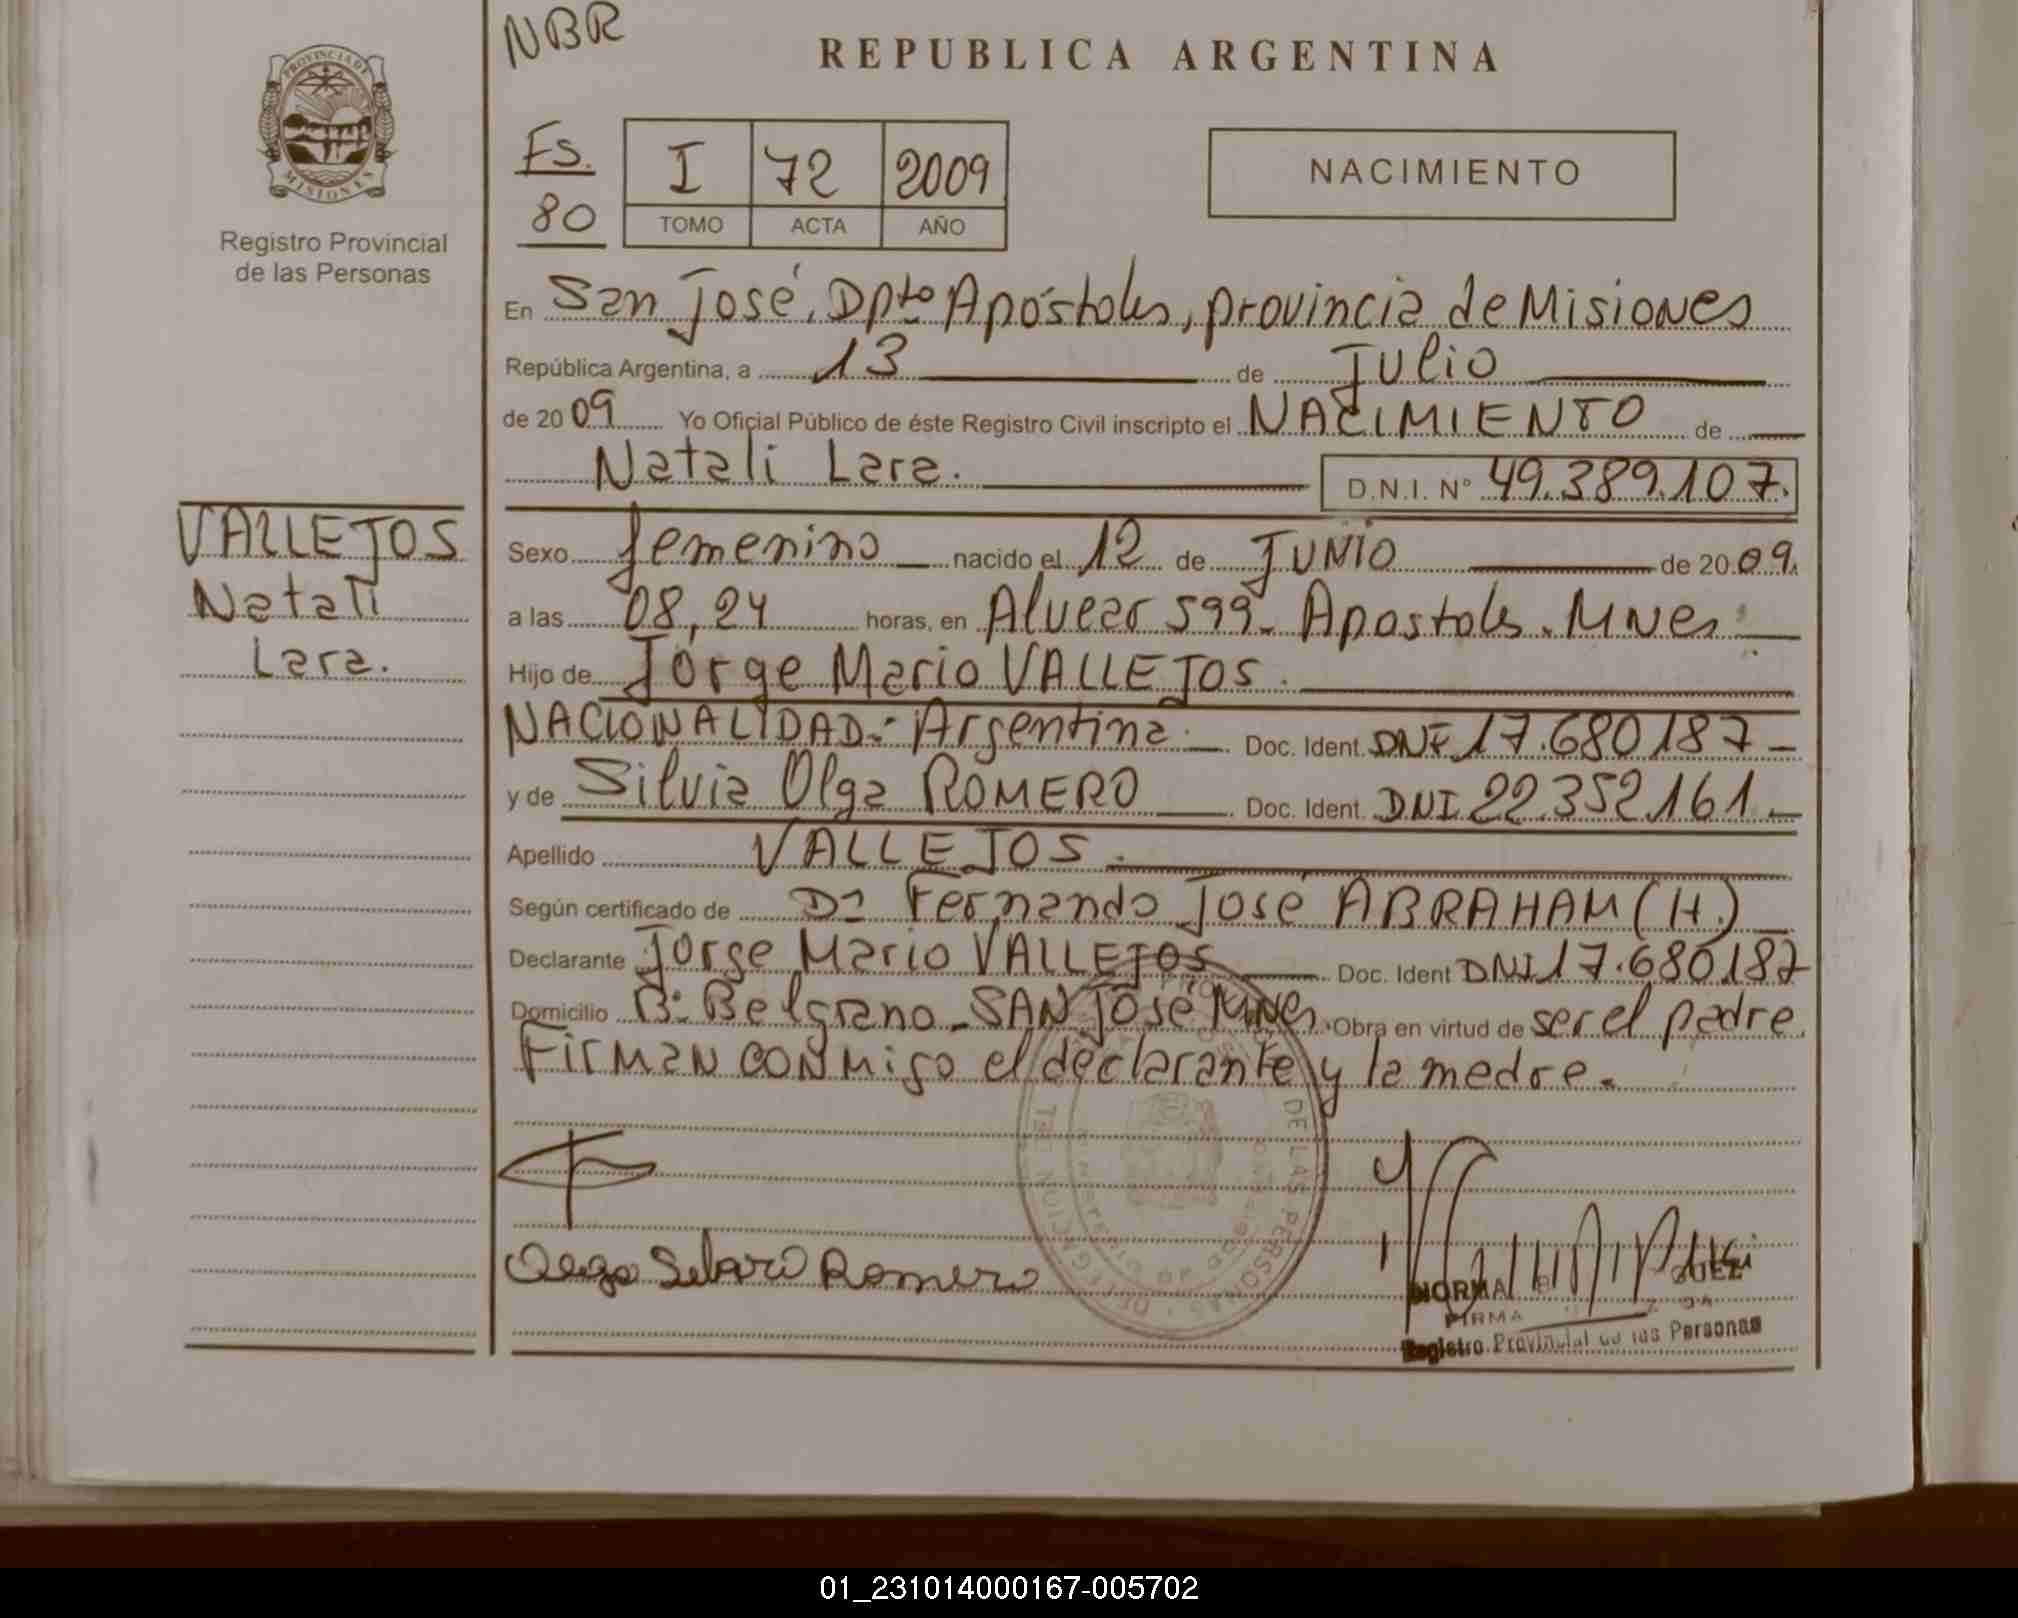 NBR
REPUBLICA ARGENTINA
PROVINCIA DE
MISIONES
Registro Provincial
de las Personas
Fs.
80
I 72 2009
TOMO ACTA AÑO
NACIMIENTO
En San José, Dpto Apóstoles, provincia de Misiones
República Argentina, a 13 de Julio
de 2009 Yo Oficial Público de éste Registro Civil inscripto el NACIMIENTO de
Natali Lara. D.N.I. N° 49.389.107.
VALLEJOS
Natali
Lara.
Sexo femenino nacido el 12 de JUNIO de 2009.
a las 08,24 horas, en Alvear 599- Apostoles. MNes
Hijo de Jorge Mario VALLEJOS.
NACIONALIDAD:- Argentina. Doc. Ident. DNI 17.680187-
y de Silvia Olga ROMERO Doc. Ident. DNI 22.352.161.-
Apellido VALLEJOS.
Según certificado de Dr Fernando José ABRAHAM (H.)
Declarante Jorge Mario VALLEJOS Doc. Ident DNI 17.680187
Domicilio B: Belgrano - SAN José MNes. Obra en virtud de ser el padre.
Firman conmigo el declarante y la madre.
DE LAS PERSONAS
Romero
NORMA
FIRMA
Registro Provincial de las Personas
01_231014000167-005702